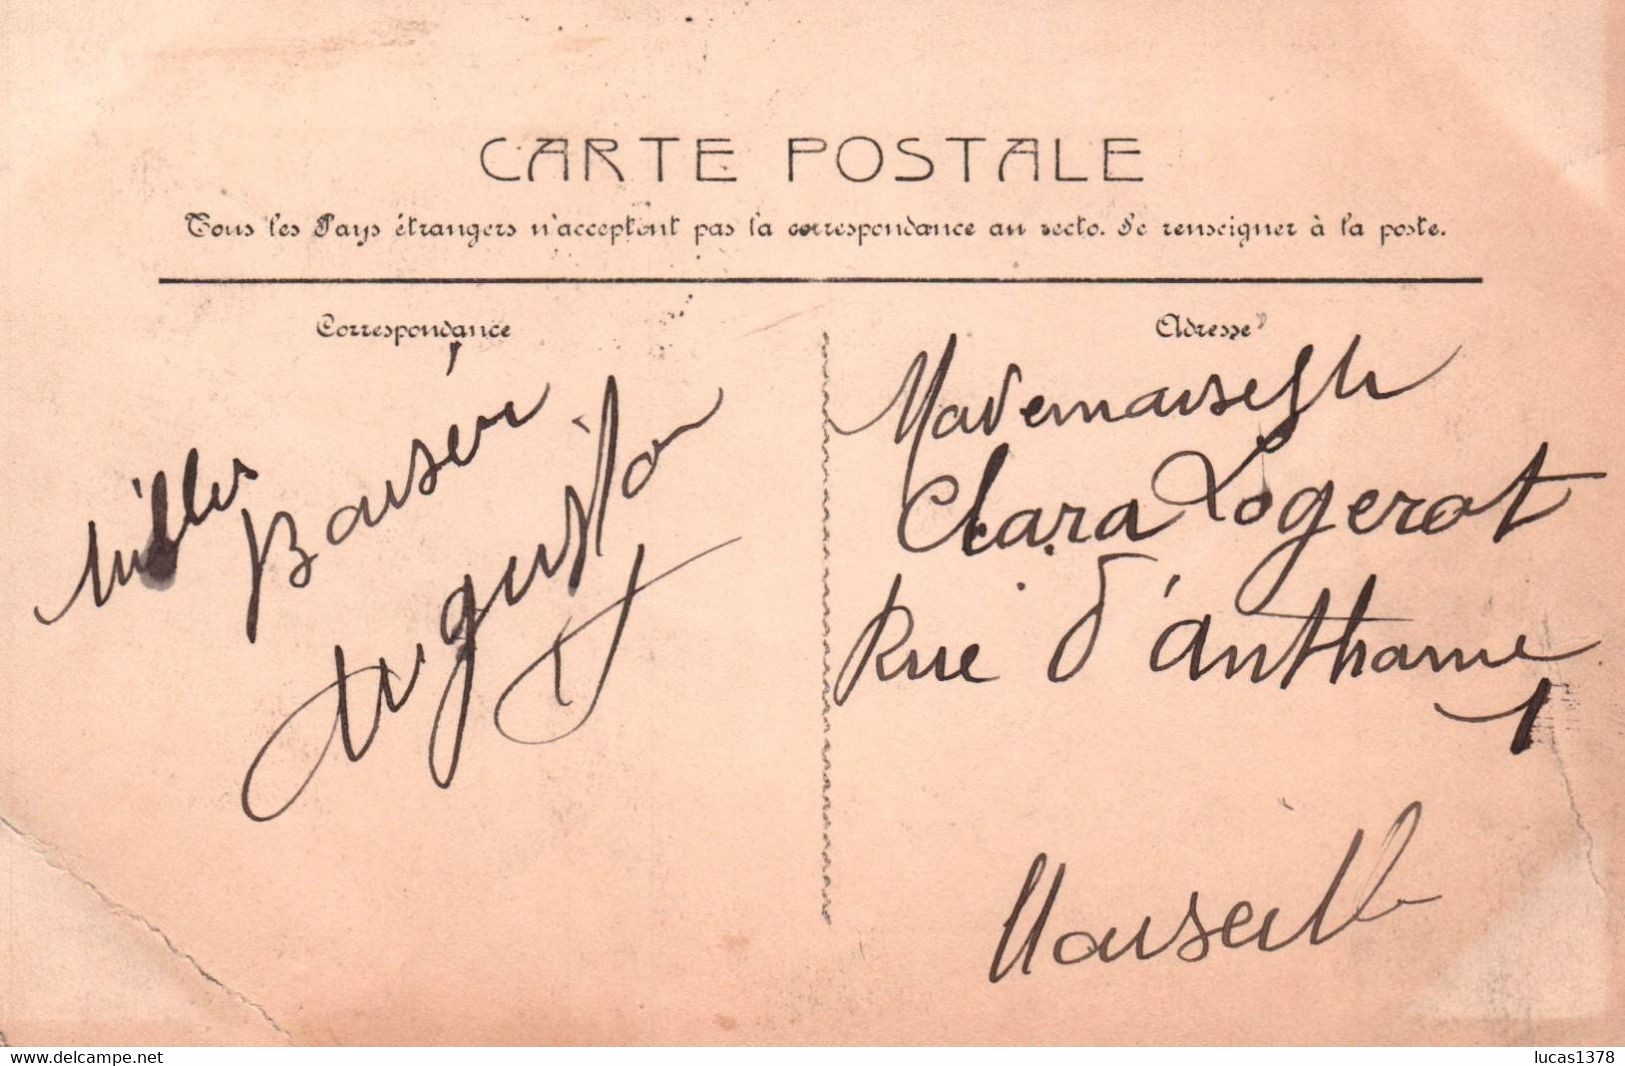 CARTE POSTALE
Tous les Pays étrangers n'acceptent pas la correspondance au recto. Se renseigner à la poste.
Correspondance
Milles
Baisers
Auguston
Adresse
Mademaiselle
Clara Logerot
Rue d'anthame
1
Marseille
www.delcampe.net
lucas1378